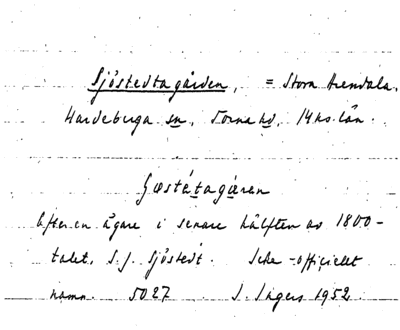 Sjöstedtagården, = Stora Arendala.
Hardeberga sn, Torna hd, Mhs. län.
Efter en ägare i senare hälften av 1800-
talet, S. J. Sjöstedt. Icke-officiellt
namn. 5027 I. Ingers 1952.